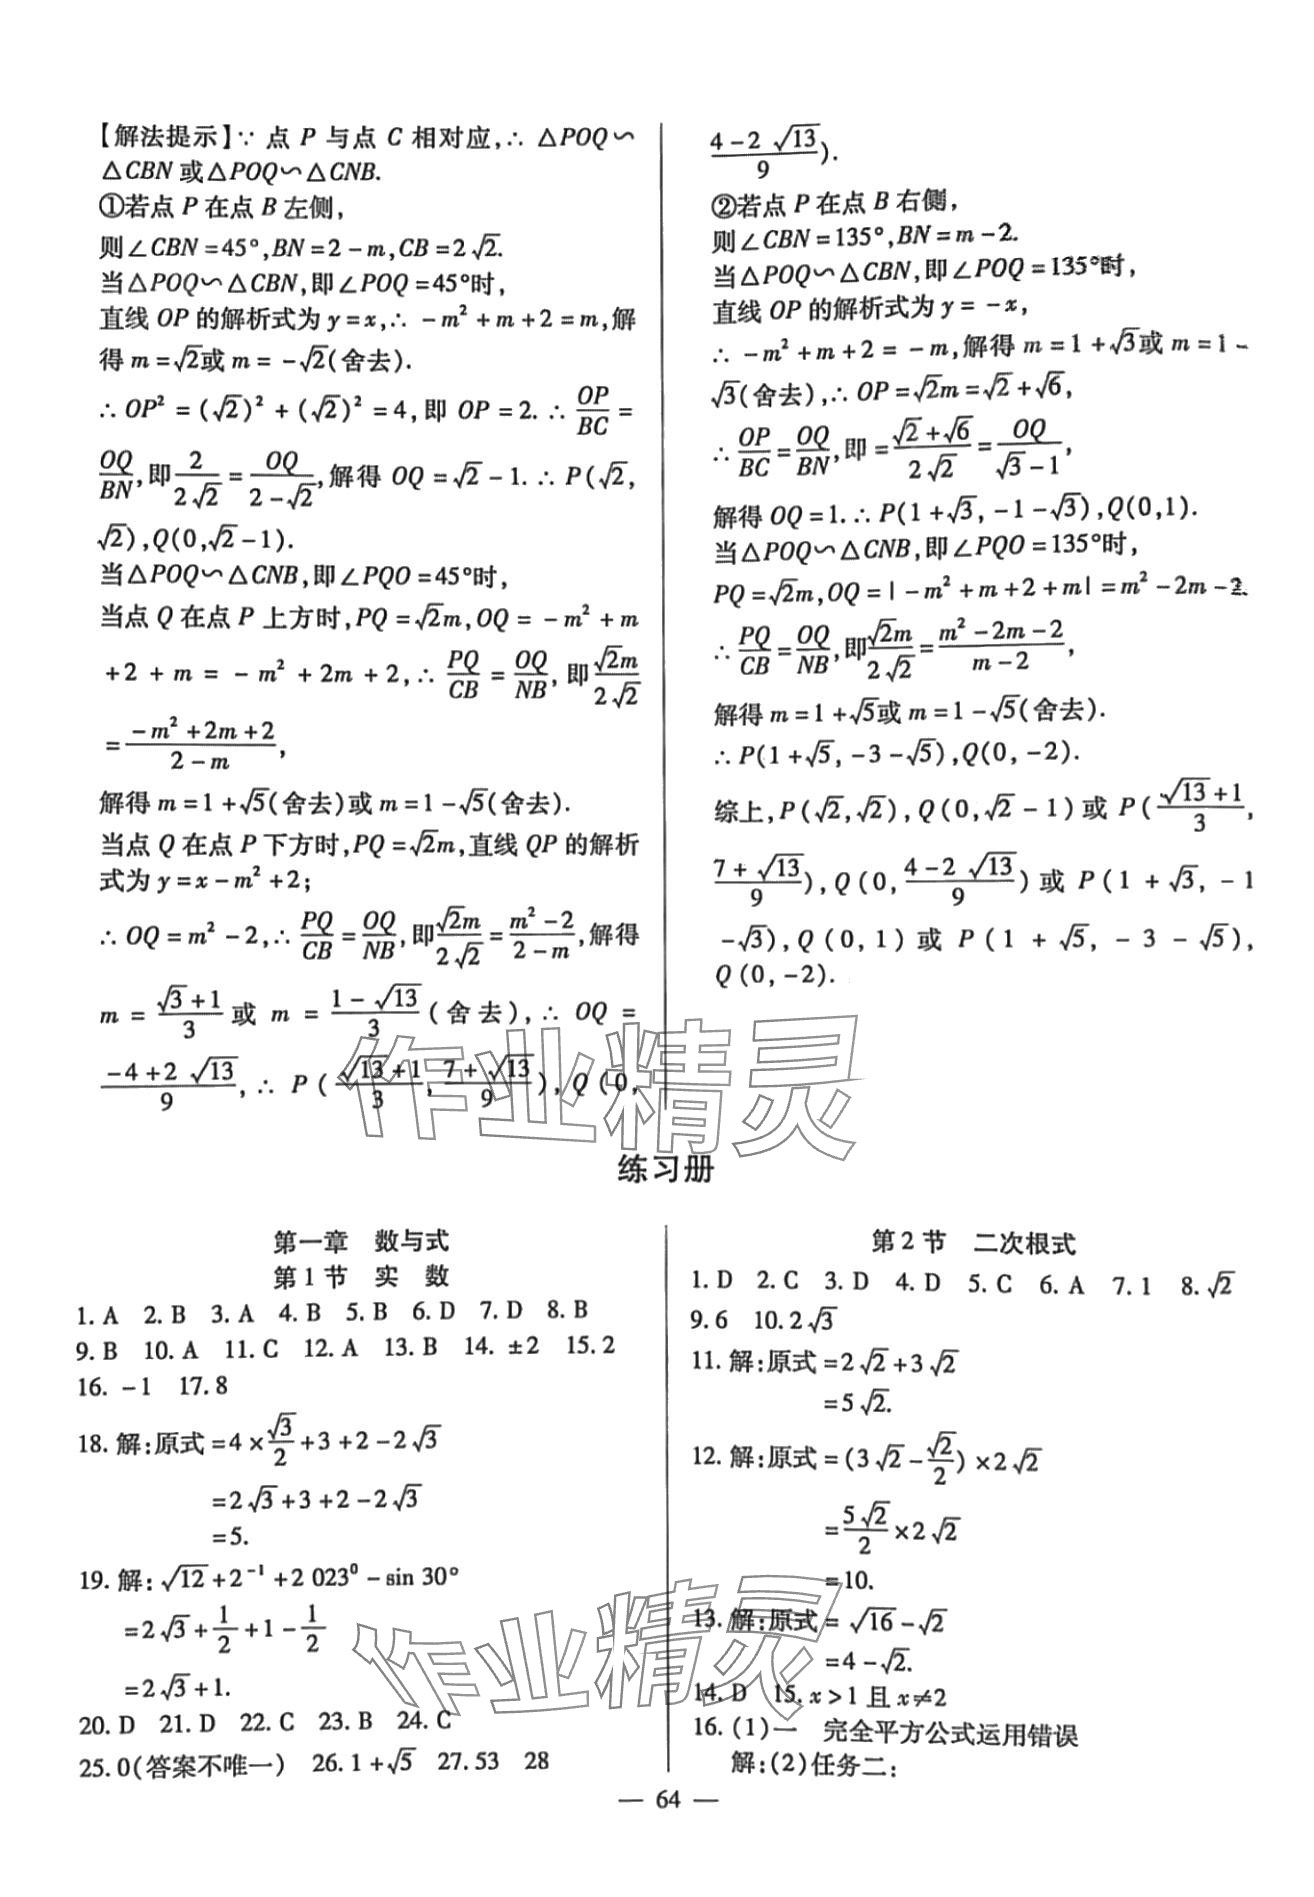 【解法提示】∵ 点 P 与点 C 相对应,∴ △POQ∽
△CBN 或△POQ∽△CNB.
①若点 P 在点 B 左侧,
则∠CBN=45°,BN=2-m,CB=2√2.
当△POQ∽△CBN,即∠POQ=45°时,
直线 OP 的解析式为 y=x,∴ -m²+m+2=m,解
得 m=√2或 m=-√2(舍去).
∴ OP²=(√2)²+(√2)²=4,即 OP=2. ∴ OP/BC=
OQ/BN,即2/(2√2)=OQ/(2-√2),解得 OQ=√2-1. ∴ P(√2,
√2),Q(0,√2-1).
当△POQ∽△CNB,即∠PQO=45°时,
当点 Q 在点 P 上方时,PQ=√2m,OQ=-m²+m
+2+m=-m²+2m+2,∴ PQ/CB=OQ/NB,即(√2m)/(2√2)
=(-m²+2m+2)/(2-m),
解得 m=1+√5(舍去)或 m=1-√5(舍去).
当点 Q 在点 P 下方时,PQ=√2m,直线 QP 的解析
式为 y=x-m²+2;
∴ OQ=m²-2,∴ PQ/CB=OQ/NB,即(√2m)/(2√2)=(m²-2)/(2-m),解得
m=(√3+1)/3 或 m=(1-√13)/3(舍去),∴ OQ=
(-4+2√13)/9,∴ P((√13+1)/3,(7+√13)/9),Q(0,
(4-2√13)/9).
②若点 P 在点 B 右侧,
则∠CBN=135°,BN=m-2.
当△POQ∽△CBN,即∠POQ=135°时,
直线 OP 的解析式为 y=-x,
∴ -m²+m+2=-m,解得 m=1+√3或 m=1-
√3(舍去),∴ OP=√2m=√2+√6,
∴ OP/BC=OQ/BN,即=(√2+√6)/(2√2)=OQ/(√3-1),
解得 OQ=1. ∴ P(1+√3,-1-√3),Q(0,1).
当△POQ∽△CNB,即∠PQO=135°时,
PQ=√2m,OQ=|-m²+m+2+m|=m²-2m-2.
∴ PQ/CB=OQ/NB,即(√2m)/(2√2)=(m²-2m-2)/(m-2),
解得 m=1+√5或 m=1-√5(舍去).
∴ P(1+√5,-3-√5),Q(0,-2).
综上,P(√2,√2),Q(0,√2-1)或 P((√13+1)/3,
(7+√13)/9),Q(0,(4-2√13)/9)或 P(1+√3,-1
-√3),Q(0,1)或 P(1+√5,-3-√5),
Q(0,-2).
作业精灵
练习册
第一章 数与式
第1节 实 数
1. A 2. B 3. A 4. B 5. B 6. D 7. D 8. B
9. B 10. A 11. C 12. A 13. B 14. ±2 15. 2
16. -1 17. 8
18. 解:原式=4×√3/2+3+2-2√3
=2√3+3+2-2√3
=5.
19. 解:√12+2⁻¹+2 023⁰-sin 30°
=2√3+1/2+1-1/2
=2√3+1.
20. D 21. D 22. C 23. B 24. C
25. 0(答案不唯一) 26. 1+√5 27. 53 28
第2节 二次根式
1. D 2. C 3. D 4. D 5. C 6. A 7. 1 8. √2
9. 6 10. 2√3
11. 解:原式=2√2+3√2
=5√2.
12. 解:原式=(3√2-√2/2)×2√2
=5√2/2×2√2
=10.
13. 解:原式=√16-√2
=4-√2.
14. D 15. x>1 且 x≠2
16. (1)一 完全平方公式运用错误
解:(2)任务二:
作业精灵
— 64 —